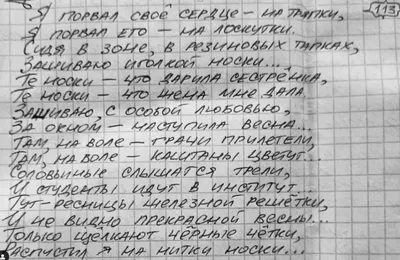 113
Я порвал своё сердце – на тряпки,
Я порвал его – на лоскутки.
Сидя в зоне, в резиновых тапках,
Зашиваю иголкой носки...
Те носки – что дарила сестрёнка,
Те носки – что жена мне дала
Зашиваю, с особой любовью,
За окном – наступила весна...
Там, на воле – грачи прилетели,
Там, на воле – каштаны цветут...
Соловьиные слышатся трели,
И студенты идут в институт...
Тут – ресницы железной решётки,
И не видно прекрасной весны...
Только щелкают чёрные чётки,
Распустил я на нитки носки...